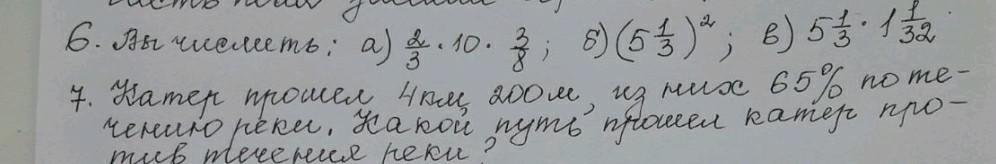 6. Вычислить: а) 2/3 · 10 · 3/8; б) (5 1/3)²; в) 5 1/3 · 1 1/32
7. Катер прошел 4км, 200м, из них 65% по те-
чению реки. Какой путь прошел катер про-
тив течения реки?